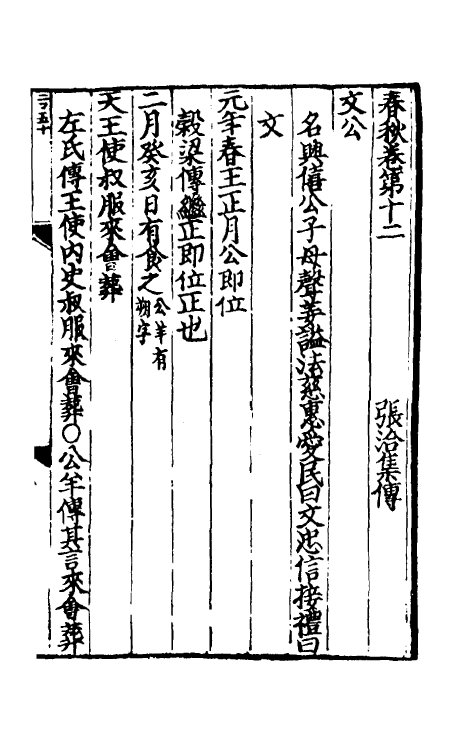 春秋卷第十二　張洽集傳
文公
名興僖公子母聲姜謚法慈惠愛民曰文忠信接禮曰
文
元年春王正月公即位
穀梁傳繼正即位正也
二月癸亥日有食之公羊有朔字
天王使叔服來會葬
左氏傳王使内史叔服來會葬○公羊傳其言來會葬